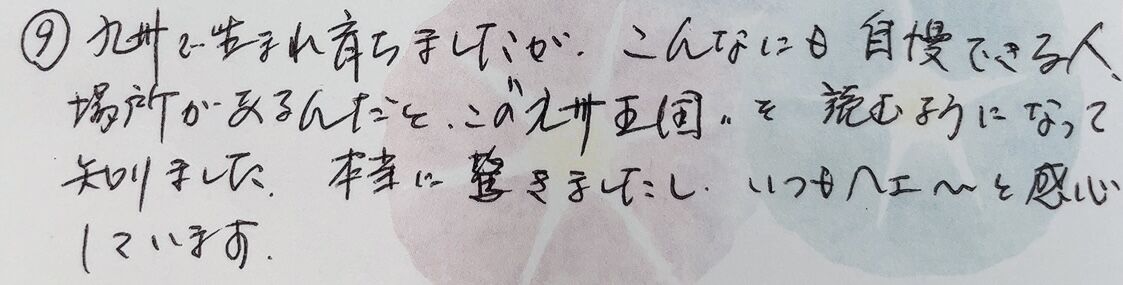 ⑨ 九州で生まれ育ちましたが、こんなにも自慢できる人、
場所があるんだと、この〝九州王国〟を読むようになって
知りました。本当に驚きましたし、いつもヘエ〜と感心
しています。